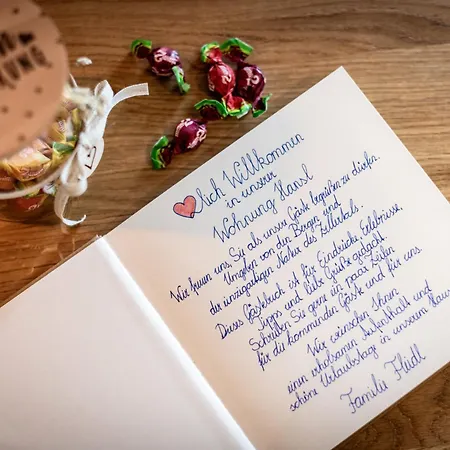 ❤lich Willkommen
in unserer
Wohnung Hansl
Wir freuen uns, Sie als unsere Gäste begrüßen zu dürfen.
Umgeben von den Bergen und
der einzigartigen Natur des Zillertals.
Dieses Gästebuch ist für Eindrücke, Erlebnisse,
Tipps und liebe Grüße gedacht.
Schreiben Sie gerne ein paar Zeilen
für die kommenden Gäste und für uns
Wir wünschen Ihnen
einen erholsamen Aufenthalt und
schöne Urlaubstage in unserem Haus
Familie Fließl